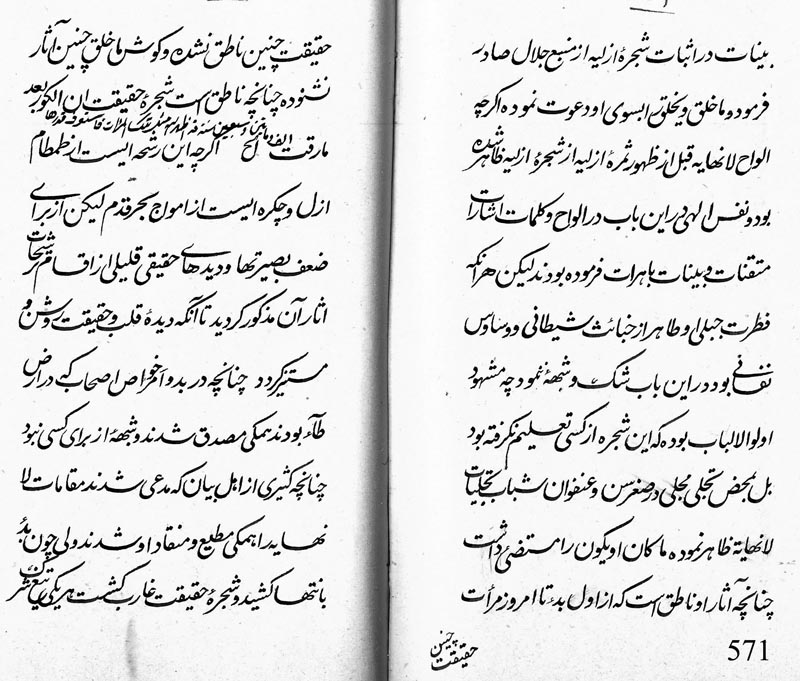 بینات در اثبات شجرهٔ ازلیه از منبع جلال صادر
فرمود و ما خلق و یخلق را بسوی او دعوت نموده اگرچه
الواح لانهایه قبل از ظهور ثمرهٔ ازلیه از شجرهٔ ازلیه ظاهر شده
بود و نفس الهی در این باب در الواح و کلمات اشارات
متقنات و بینات باهرات فرموده بودند لیکن هر آنکه
فطرت جبلی او طاهر از خبائث شیطانی و وساوس
نفسانی بود در این باب شک و شبهه ننمود چه مشهود
اولوالالباب بوده که این شجره از کسی تعلیم نگرفته بود
بل بمحض تجلی مجلی در صغر سن و عنفوان شباب تجلیات
لانهایة ظاهر نموده ما کان او یکون را مستضئ داشت
چنانچه آثار او ناطق است که از اول بدء تا امروز مرآت
حقیقت چنین
571
حقیقت چنین ناطق نشده و گوش ما خلق چنین آثار
نشنوده چنانچه ناطق است شجرهٔ حقیقت ان الکور بعد
مارقت الف و الخ اگرچه این رشحه ایست از طمطام
ازل و چکره ایست از امواج بحر قدم لیکن از برای
ضعف بصیرتها و دیدهای حقیقی قلیلی از اقسام رشحات
آثار آن مذکور گردید تا آنکه دیدهٔ قلب و حقیقت روشن و
مستنیر گردد چنانچه در بدو امر خواص اصحاب که در ارض
طاء بودند همگی مصدق شدند و شبههٔ از برای کسی نبود
چنانچه کثیری از اهل بیان که مدعی شدند مقامات لا
نهایه را همگی مطیع و منقاد او شدند ولی چون بدء
بانتها کشید و شجرهٔ حقیقت غارب گشت هر یکی